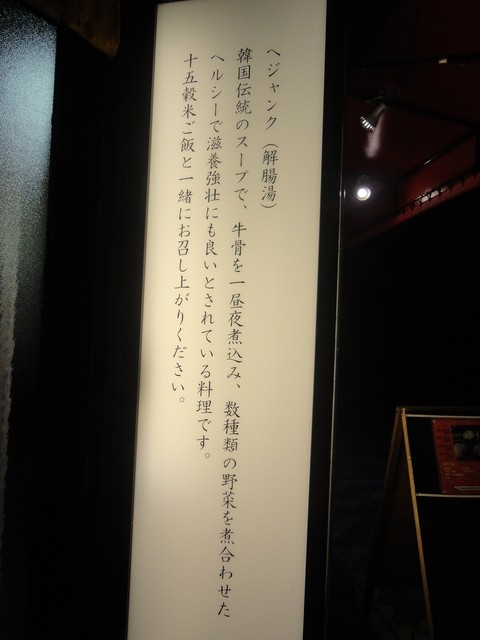 ヘジャンク（解腸湯）
韓国伝統のスープで、牛骨を一昼夜煮込み、数種類の野菜を煮合わせた
ヘルシーで滋養強壮にも良いとされている料理です。
十五穀米ご飯と一緒にお召し上がりください。